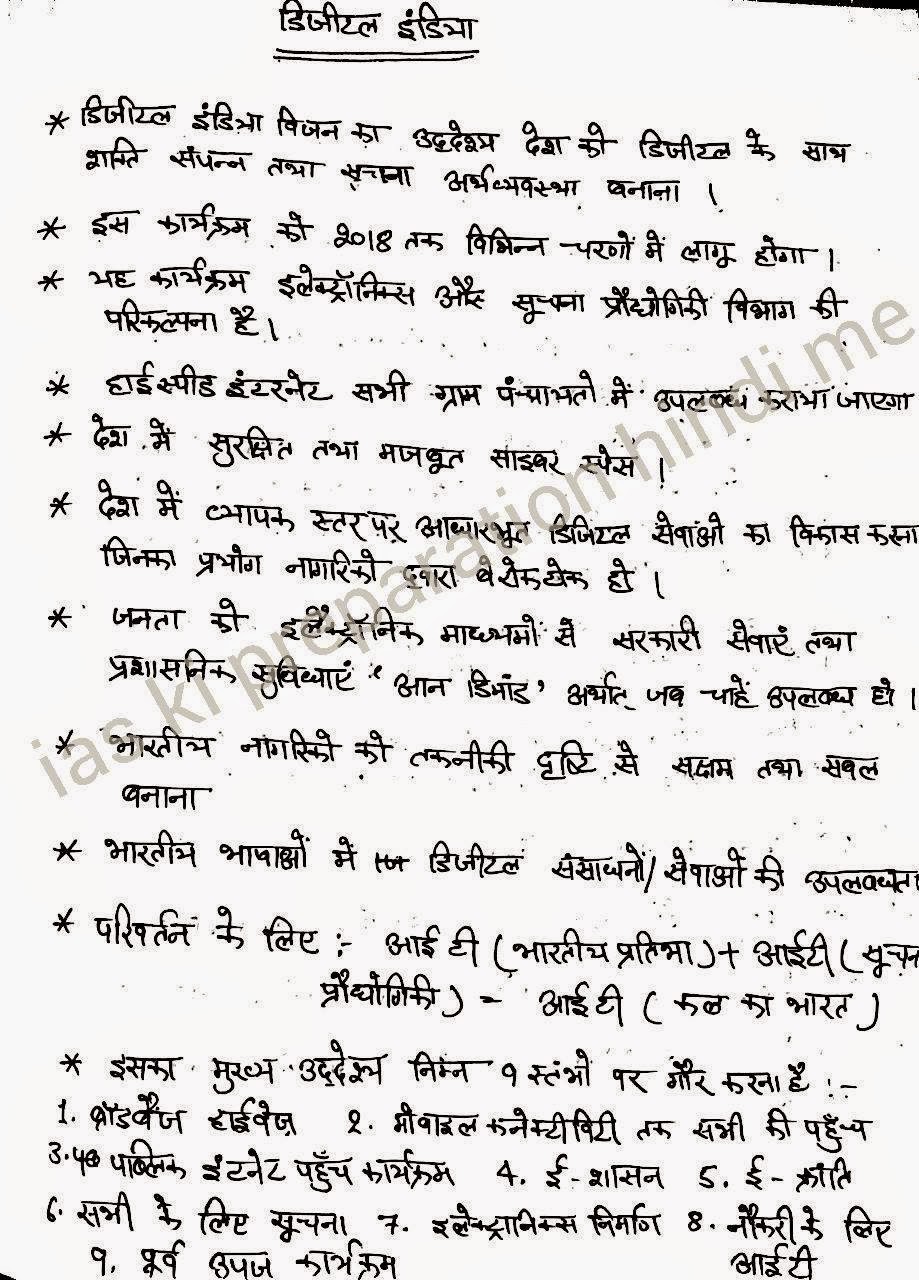 डिजीटल इंडिया
* डिजीटल इंडिया विजन का उद्देश्य देश को डिजीटल के साथ
शक्ति संपन्न तथा सूचना अर्थव्यवस्था बनाना ।
* इस कार्यक्रम को 2018 तक विभिन्न चरणों में लागू होगा ।
* यह कार्यक्रम इलेक्ट्रॉनिक्स और सूचना प्रौद्योगिकी विभाग की
परिकल्पना है ।
* हाईस्पीड इंटरनेट सभी ग्राम पंचायतो में उपलब्ध कराया जाएगा
* देश में सुरक्षित तथा मजबूत साइबर स्पेस ।
* देश में व्यापक स्तर पर आधारभूत डिजिटल सेवाओं का विकास करना
जिनका प्रयोग नागरिको द्वारा बेरोकटोक हो ।
* जनता को इलेक्ट्रॉनिक माध्यमों से सरकारी सेवाएं तथा
प्रशासनिक सुविधाएं 'आन डिमांड' अर्थात् जब चाहें उपलब्ध हो ।
* भारतीय नागरिको को तकनीकी दृष्टि से सक्षम तथा सबल
बनाना
* भारतीय भाषाओं में डिजीटल संसाधनों/सेवाओं की उपलब्धता
* परिवर्तन के लिए :- आई टी (भारतीय प्रतिभा) + आईटी (सूचन
प्रौद्योगिकी) - आई टी (कल का भारत)
* इसका मुख्य उद्देश्य निम्न 9 स्तंभो पर गौर करना है :-
1. ब्रॉडबैंज हाईवेज़ 2. मोबाइल कनेक्टीविटी तक सभी की पहुँच
3. पब्लिक इंटनेट पहुँच कार्यक्रम 4. ई-शासन 5. ई-क्रांति
6. सभी के लिए सूचना 7. इलेक्ट्रानिक्स निर्माण 8. नौकरी के लिए
9. पूर्व उपज कार्यक्रम आई टी
ias ki preparation hindi me